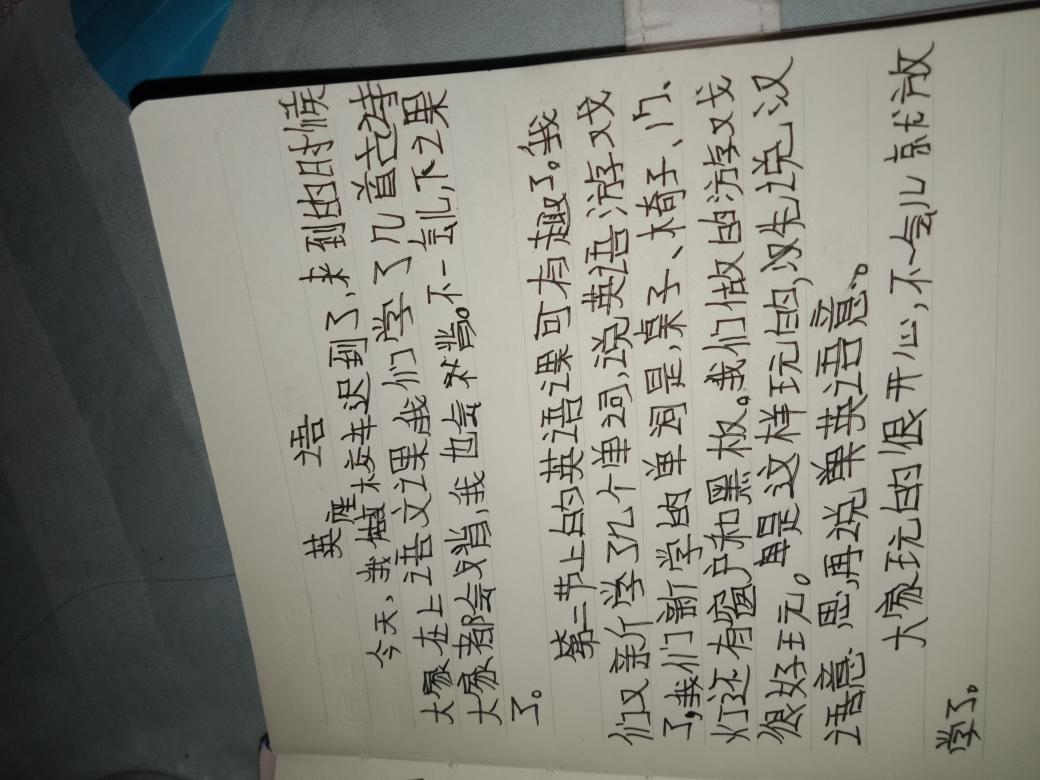 英语
今天、我座校车迟到了,来到的时候
大家在上语文课我们学了几首古诗
大家都会背,我也会背。不一会儿,下课
了。
第二节上的英语课可有趣了。我
们又新学了几个单词,说英语游戏
了,我们新学的单词是,桌子、椅子、门、
灯还有窗户和黑板。我们做的游戏
很好玩。是这样玩的,先说汉
语意思,再说单英语意。
大家玩的很开心,不一会儿就放
学了。